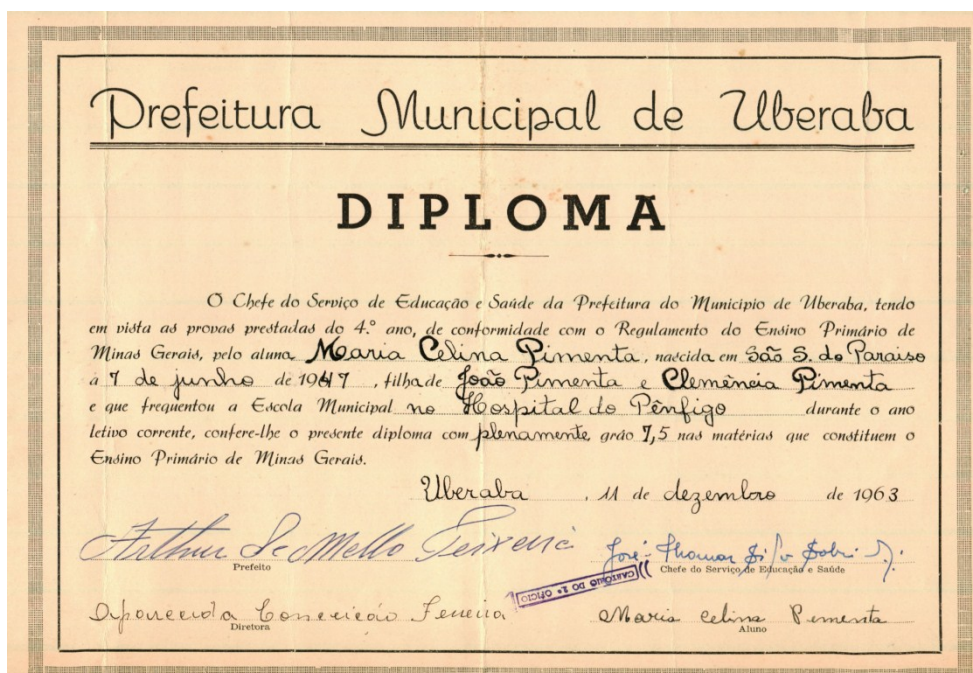 Prefeitura Municipal de Uberaba
DIPLOMA
O Chefe do Serviço de Educação e Saúde da Prefeitura do Município de Uberaba, tendo
em vista as provas prestadas do 4.º ano, de conformidade com o Regulamento do Ensino Primário de
Minas Gerais, pelo aluna Maria Celina Pimenta, nascida em São S. do Paraiso
a 7 de junho de 1947, filha de João Pimenta e Clemência Pimenta
e que frequentou a Escola Municipal no Hospital do Pênfigo durante o ano
letivo corrente, confere-lhe o presente diploma com plenamente grão 7,5 nas matérias que constituem o
Ensino Primário de Minas Gerais.
Uberaba, 11 de dezembro de 1963
Arthur de Mello Teixeira
Prefeito
José Thomaz
Chefe do Serviço de Educação e Saúde
CARTÓRIO DO 2º OFICIO
Aparecida Conceição Ferreira
Diretora
Maria Celina Pimenta
Aluno